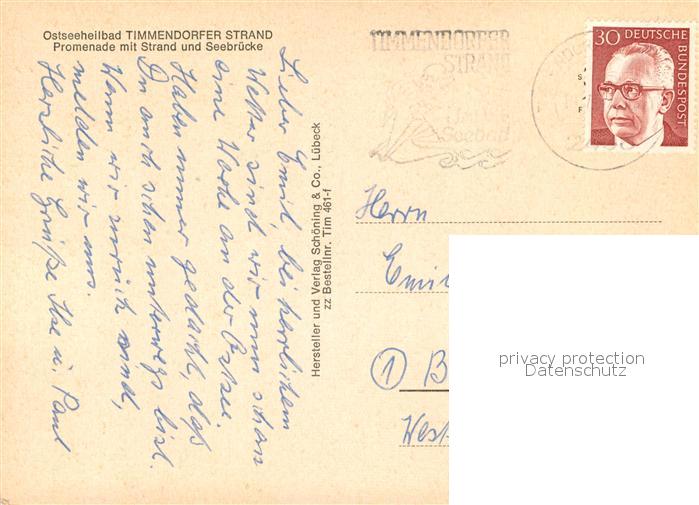 Ostseeheilbad TIMMENDORFER STRAND
Promenade mit Strand und Seebrücke
Lieber Emil, bei herrlichem
Wetter sind wir nun schon
eine Woche an der Ostsee.
Haben immer gedacht, daß
Du auch schon unterwegs bist.
Wenn wir zurück sind,
melden wir uns.
Herzliche Grüße Ilse u. Paul
Hersteller und Verlag Schöning & Co., Lübeck
zz Bestellnr. Tim 461-f
TIMMENDORFER
STRAND
Seebad
30 DEUTSCHE
BUNDESPOST
Herrn
Emil
① B
West
privacy protection
Datenschutz